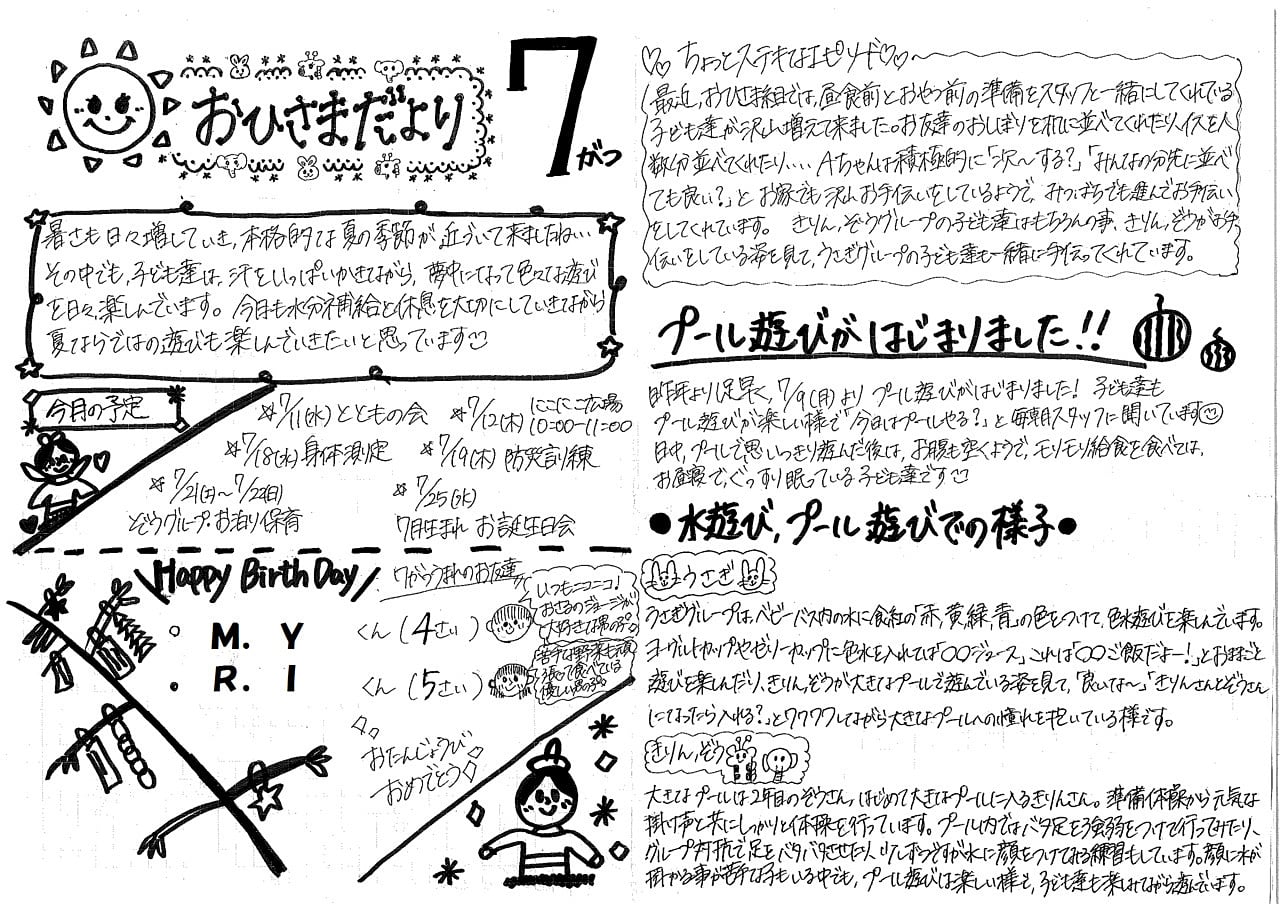 おひさまだより
7がつ
暑さも日々増していき、本格的な夏の季節が近づいて来ましたね…
その中でも、子ども達は、汗をいっぱいかきながら、夢中になって色々な遊び
を日々、楽しんでいます。今月も水分補給と休息を大切にしていきながら
夏ならではの遊びも楽しんでいきたいと思っています
今月の予定
☆7/11(水)とともの会
☆7/12(木)にこにこ広場 10:00-11:00
☆7/18(水)身体測定
☆7/19(木)防災訓練
☆7/21(土)～7/22(日)
ぞうグループ・お泊り保育
☆7/25(水)
7月生まれ お誕生日会
Happy BirthDay
7がつうまれのお友達
。M. Y くん(4さい)
いつもニコニコ!
おさるのジョージが
大好きな男の子。
。R. I くん(5さい)
苦手な野菜も頑
張って食べている
優しい男の子。
おたんじょうび
おめでとう
♡♡ちょっとステキなエピソード♡♡
最近、おひさま組では、昼食前とおやつ前の準備をスタッフと一緒にしてくれている
子ども達が沢山増えて来ました。お友達のおしぼりを机に並べてくれたり、イスを人
数分並べてくれたり.... Aちゃんは積極的に「沢～する?」「みんなの分先に並べ
ても良い?」と お家でも沢山お手伝いをしているようで、みつばちでも進んでお手伝い
をしてくれています。 きりん、ぞうグループの子ども達はもちろんの事、きりん、ぞうがお手
伝いをしている姿を見て、うさぎグループの子ども達も一緒に手伝ってくれています。
プール遊びがはじまりました!!
昨年より一足早く、7/9(月)より プール遊びがはじまりました! 子ども達も
プール遊びが楽しい様で「今日はプールやる?」と毎朝スタッフに聞いています
日中、プールで思いっきり遊んだ後は、お腹も空くようで、モリモリ給食を食べては、
お昼寝で、ぐっすり眠っている子ども達です
●水遊び、プール遊びでの様子●
うさぎ
うさぎグループは、ベビーバス内の水に食紅の「赤、黄、緑、青」の色をつけて、色水遊びを楽しんでいます。
ヨーグルトカップやゼリーカップに色水を入れれば「〇〇ジュース」これは「〇〇ご飯だよー!」とおままごと
遊びを楽しんだり、きりん、ぞうが大きなプールで遊んでいる姿を見て、「良いな～」「きりんさんとぞうさん
になったら入れる?」とワクワクしながら大きなプールへの憧れを抱いている様です。
きりん、ぞう
大きなプールは2年目のぞうさん、はじめて大きなプールに入るきりんさん。準備体操から元気な
掛け声と共にしっかりと体操を行っています。プール内ではバタ足を強弱をつけて行ってみたり、
グループ対抗で足をバタバタさせたり、少しずつですが水に顔をつけてみる練習もしています。顔に水が
掛かる事が苦手な子もいる中でも、プール遊びは楽しい様で、子ども達も楽しみながら遊んでいます。